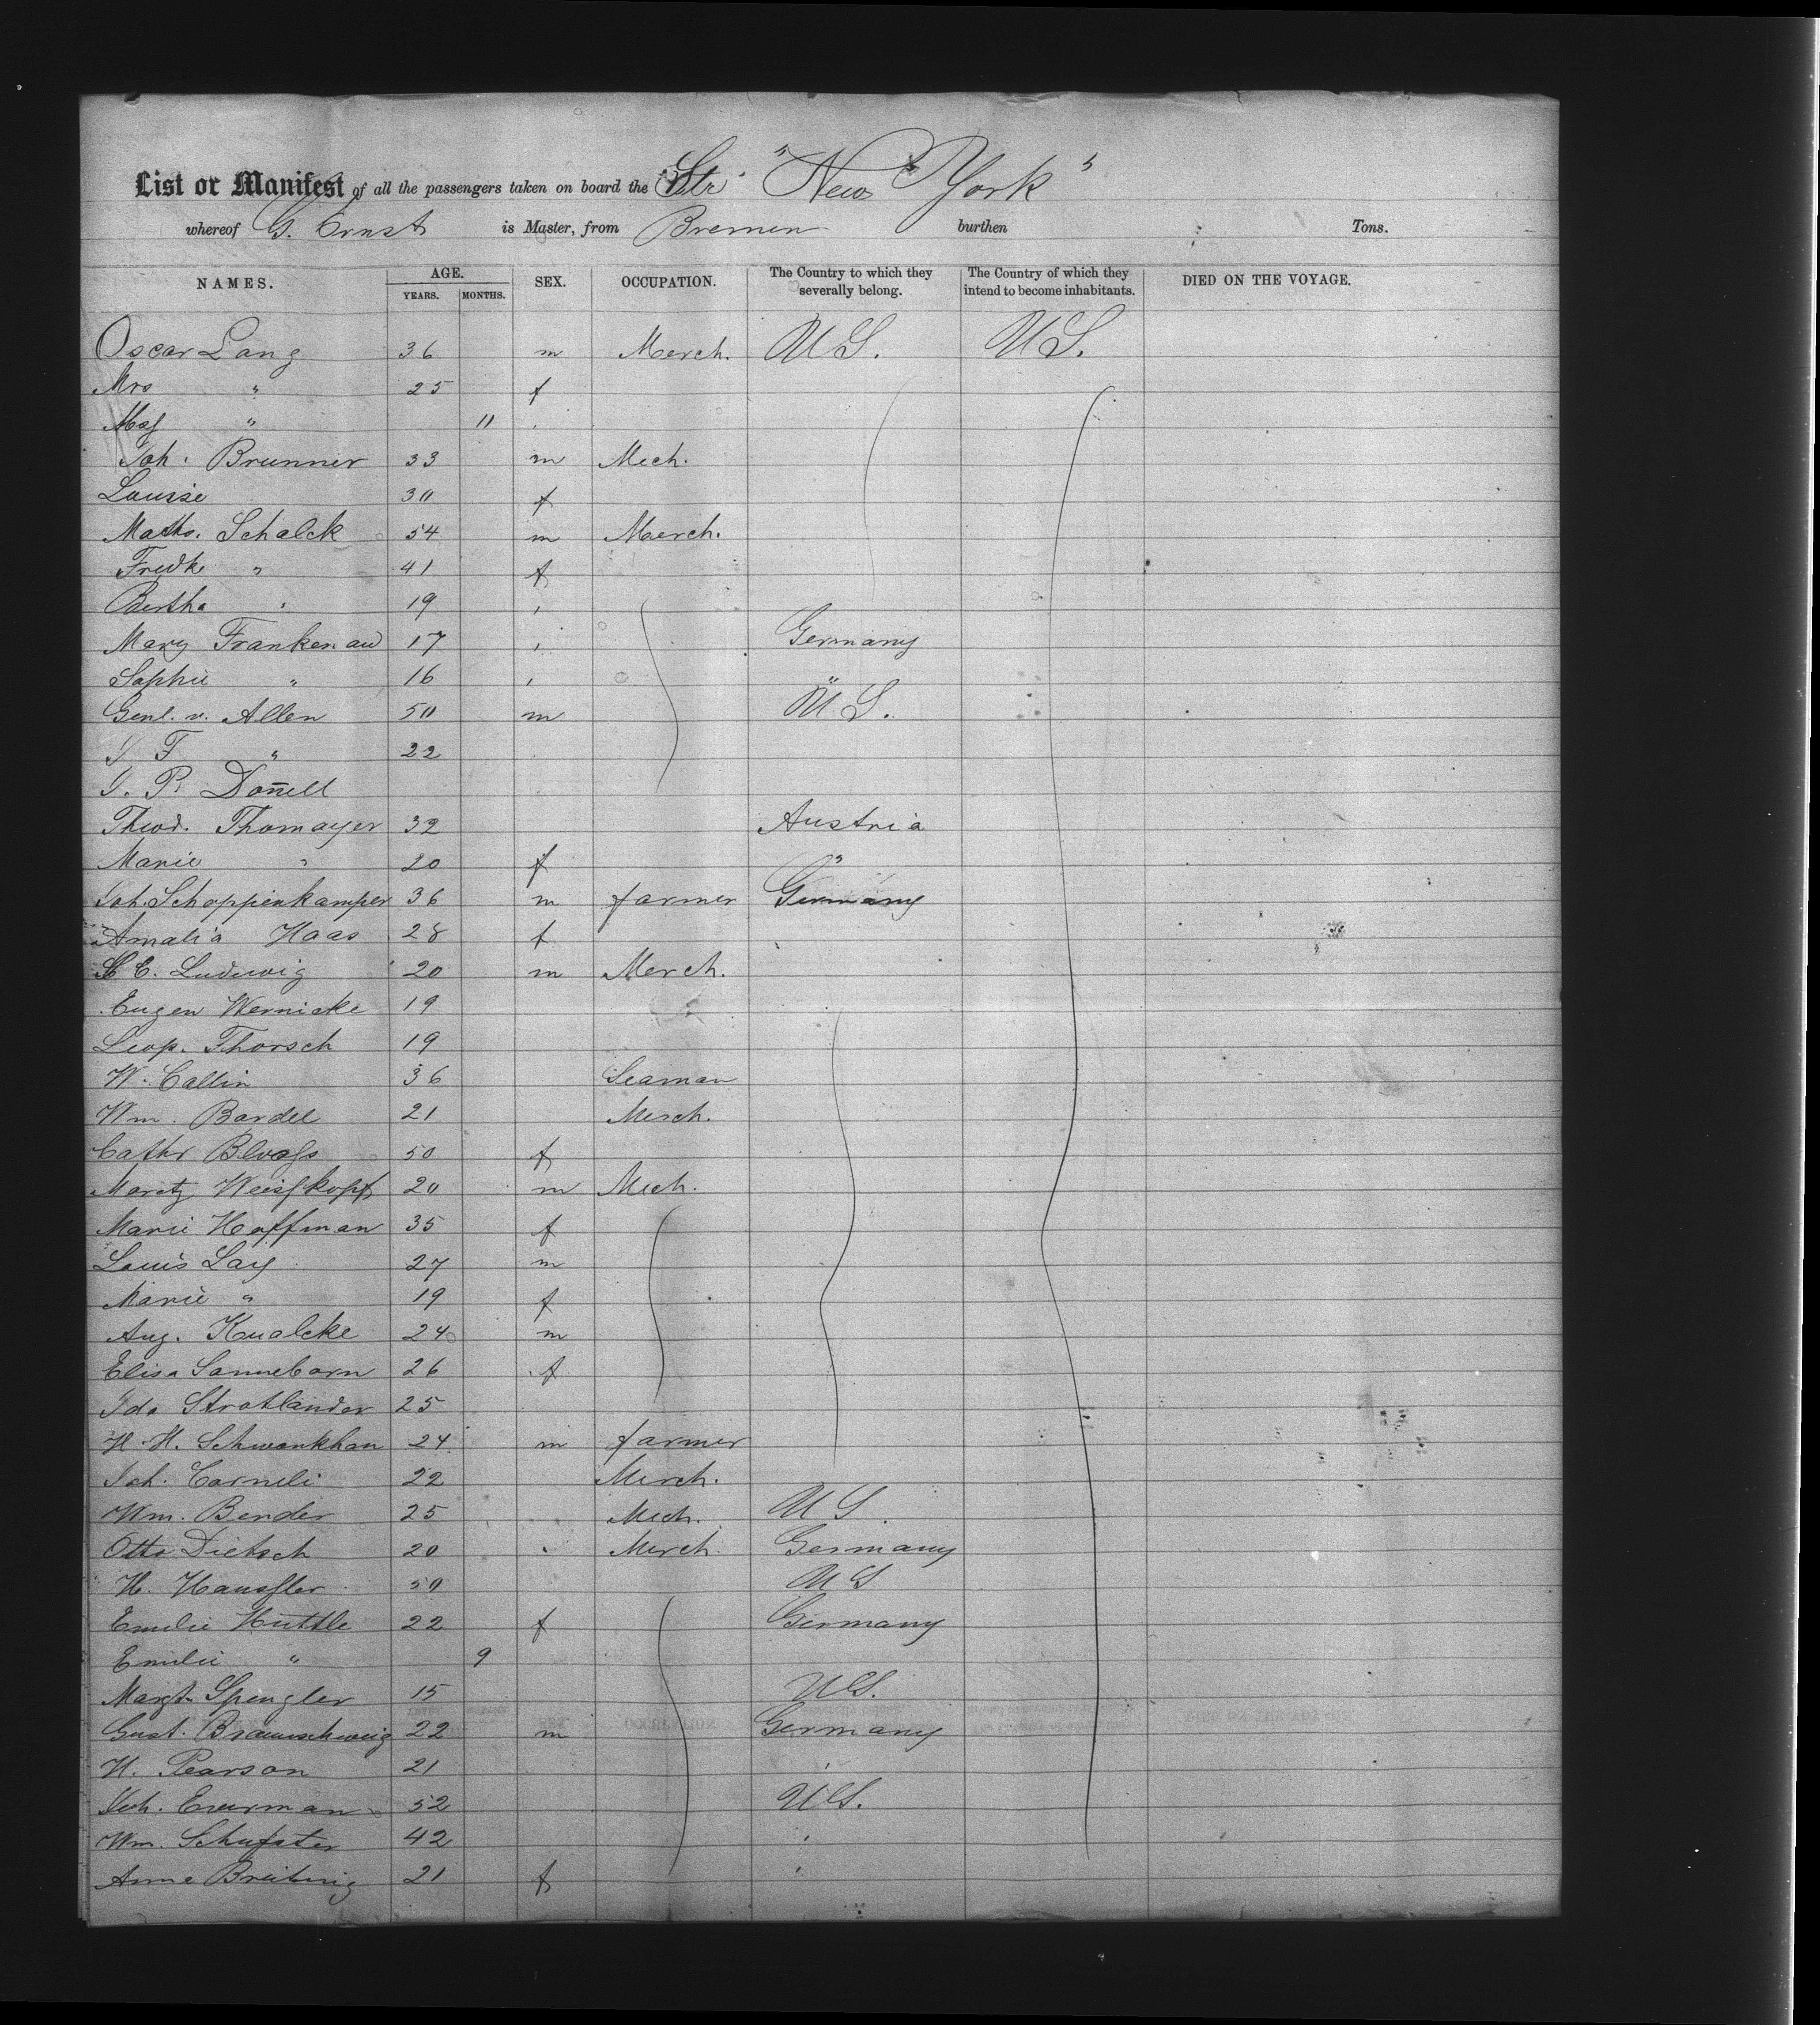 List or Manifest of all the passengers taken on board the Str "New York"
whereof G. Ernst is Master, from Bremen burthen Tons.
NAMES. AGE. YEARS. MONTHS. SEX. OCCUPATION. The Country to which they severally belong. The Country of which they intend to become inhabitants. DIED ON THE VOYAGE.
Oscar Lang 36 m Merch. U S. U S.
Mrs " 25 f
" 11
Joh. Brunner 33 m Mech.
Louise 30 f
Maths. Schalck 54 m Merch.
Fredke " 41 f
Bertha " 19
Mary Frankenau 17 Germany
Sophie " 16 "
Genl. v. Allen 50 m U S.
F " 22
P. Donell
Theod. Thomayer 32 Austria
Marie " 20 f "
Joh. Schoppenkamper 36 m farmer Germany
Amalia Haas 28 f
C. Ludwig 20 m Merch.
Eugen Wernicke 19
Leop. Thorsch 19
W. Callin 36 Seaman
Wm. Bardel 21 Merch.
Cathr 50 f
Moretz Weisskopf 20 m Mech.
Marie Hoffman 35 f
Louis Lay 27 m
Marie " 19 f
Aug. 24 m
Elisa Sonneborn 26 f
Ida Strotlander 25
H. H. Schwankhan 24 m farmer
Joh. Corneli 22 Merch.
Wm. Bender 25 Mech. U S.
Otto Dietsch 20 Merch. Germany
H. Haussler 50 U S
Emilie Huttle 22 f Germany
Emilie " 9
Margt. Spengler 15 U S.
Gust. Braunschweig 22 m Germany
H. Pearson 21
Joh. 52 U S.
Wm. Schuster 42
Anna Breitung 21 f